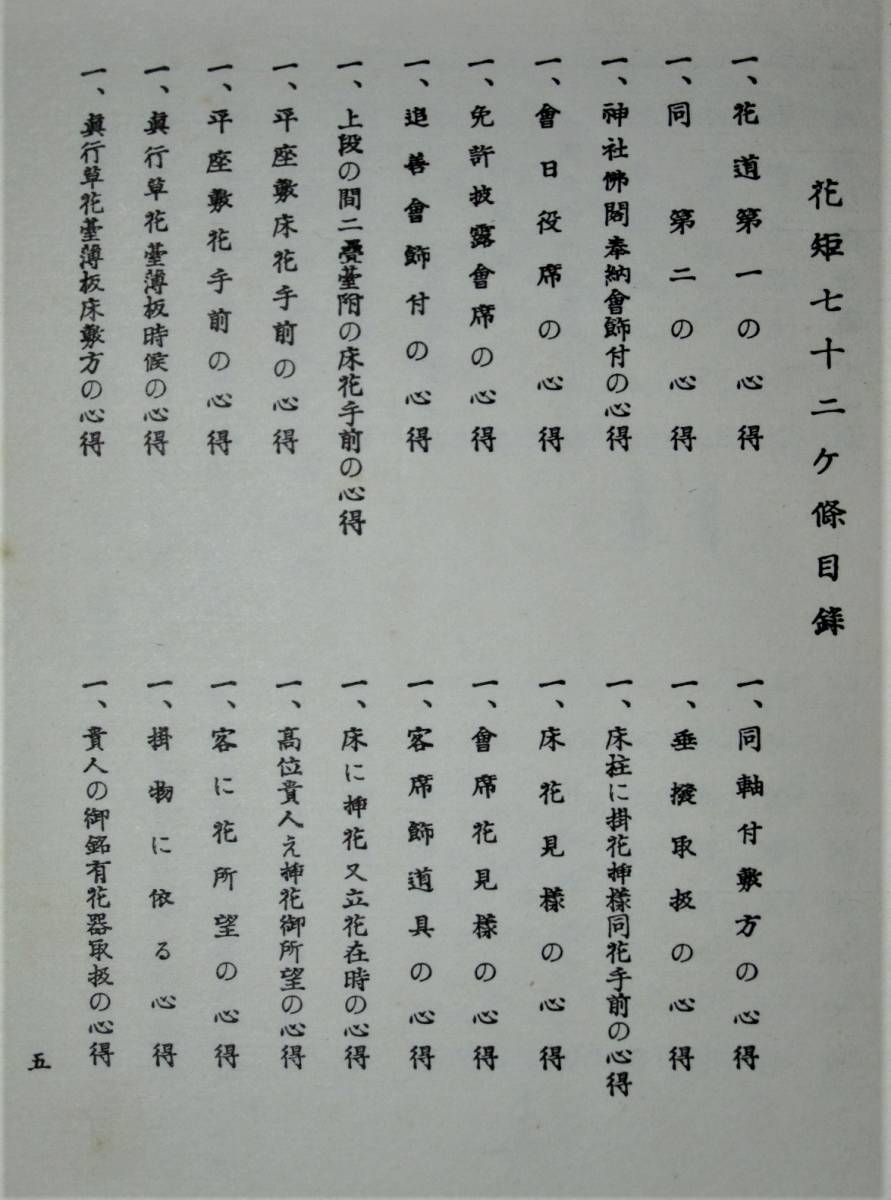 花矩七十二ケ條目錄
一、花道第一の心得
一、同第二の心得
一、神社佛閣奉納會飾付の心得
一、會日役席の心得
一、免許披露會席の心得
一、追善會飾付の心得
一、上段の間二疊臺附の床花手前の心得
一、平座敷床花手前の心得
一、平座敷花手前の心得
一、眞行草花臺薄板時候の心得
一、眞行草花臺薄板床敷方の心得
一、同軸付敷方の心得
一、垂撥取扱の心得
一、床柱に掛花挿樣同花手前の心得
一、床花見樣の心得
一、會席花見樣の心得
一、客席飾道具の心得
一、床に挿花又立花在時の心得
一、高位貴人え挿花御所望の心得
一、客に花所望の心得
一、掛物に依る心得
一、貴人の御銘有花器取扱の心得
五